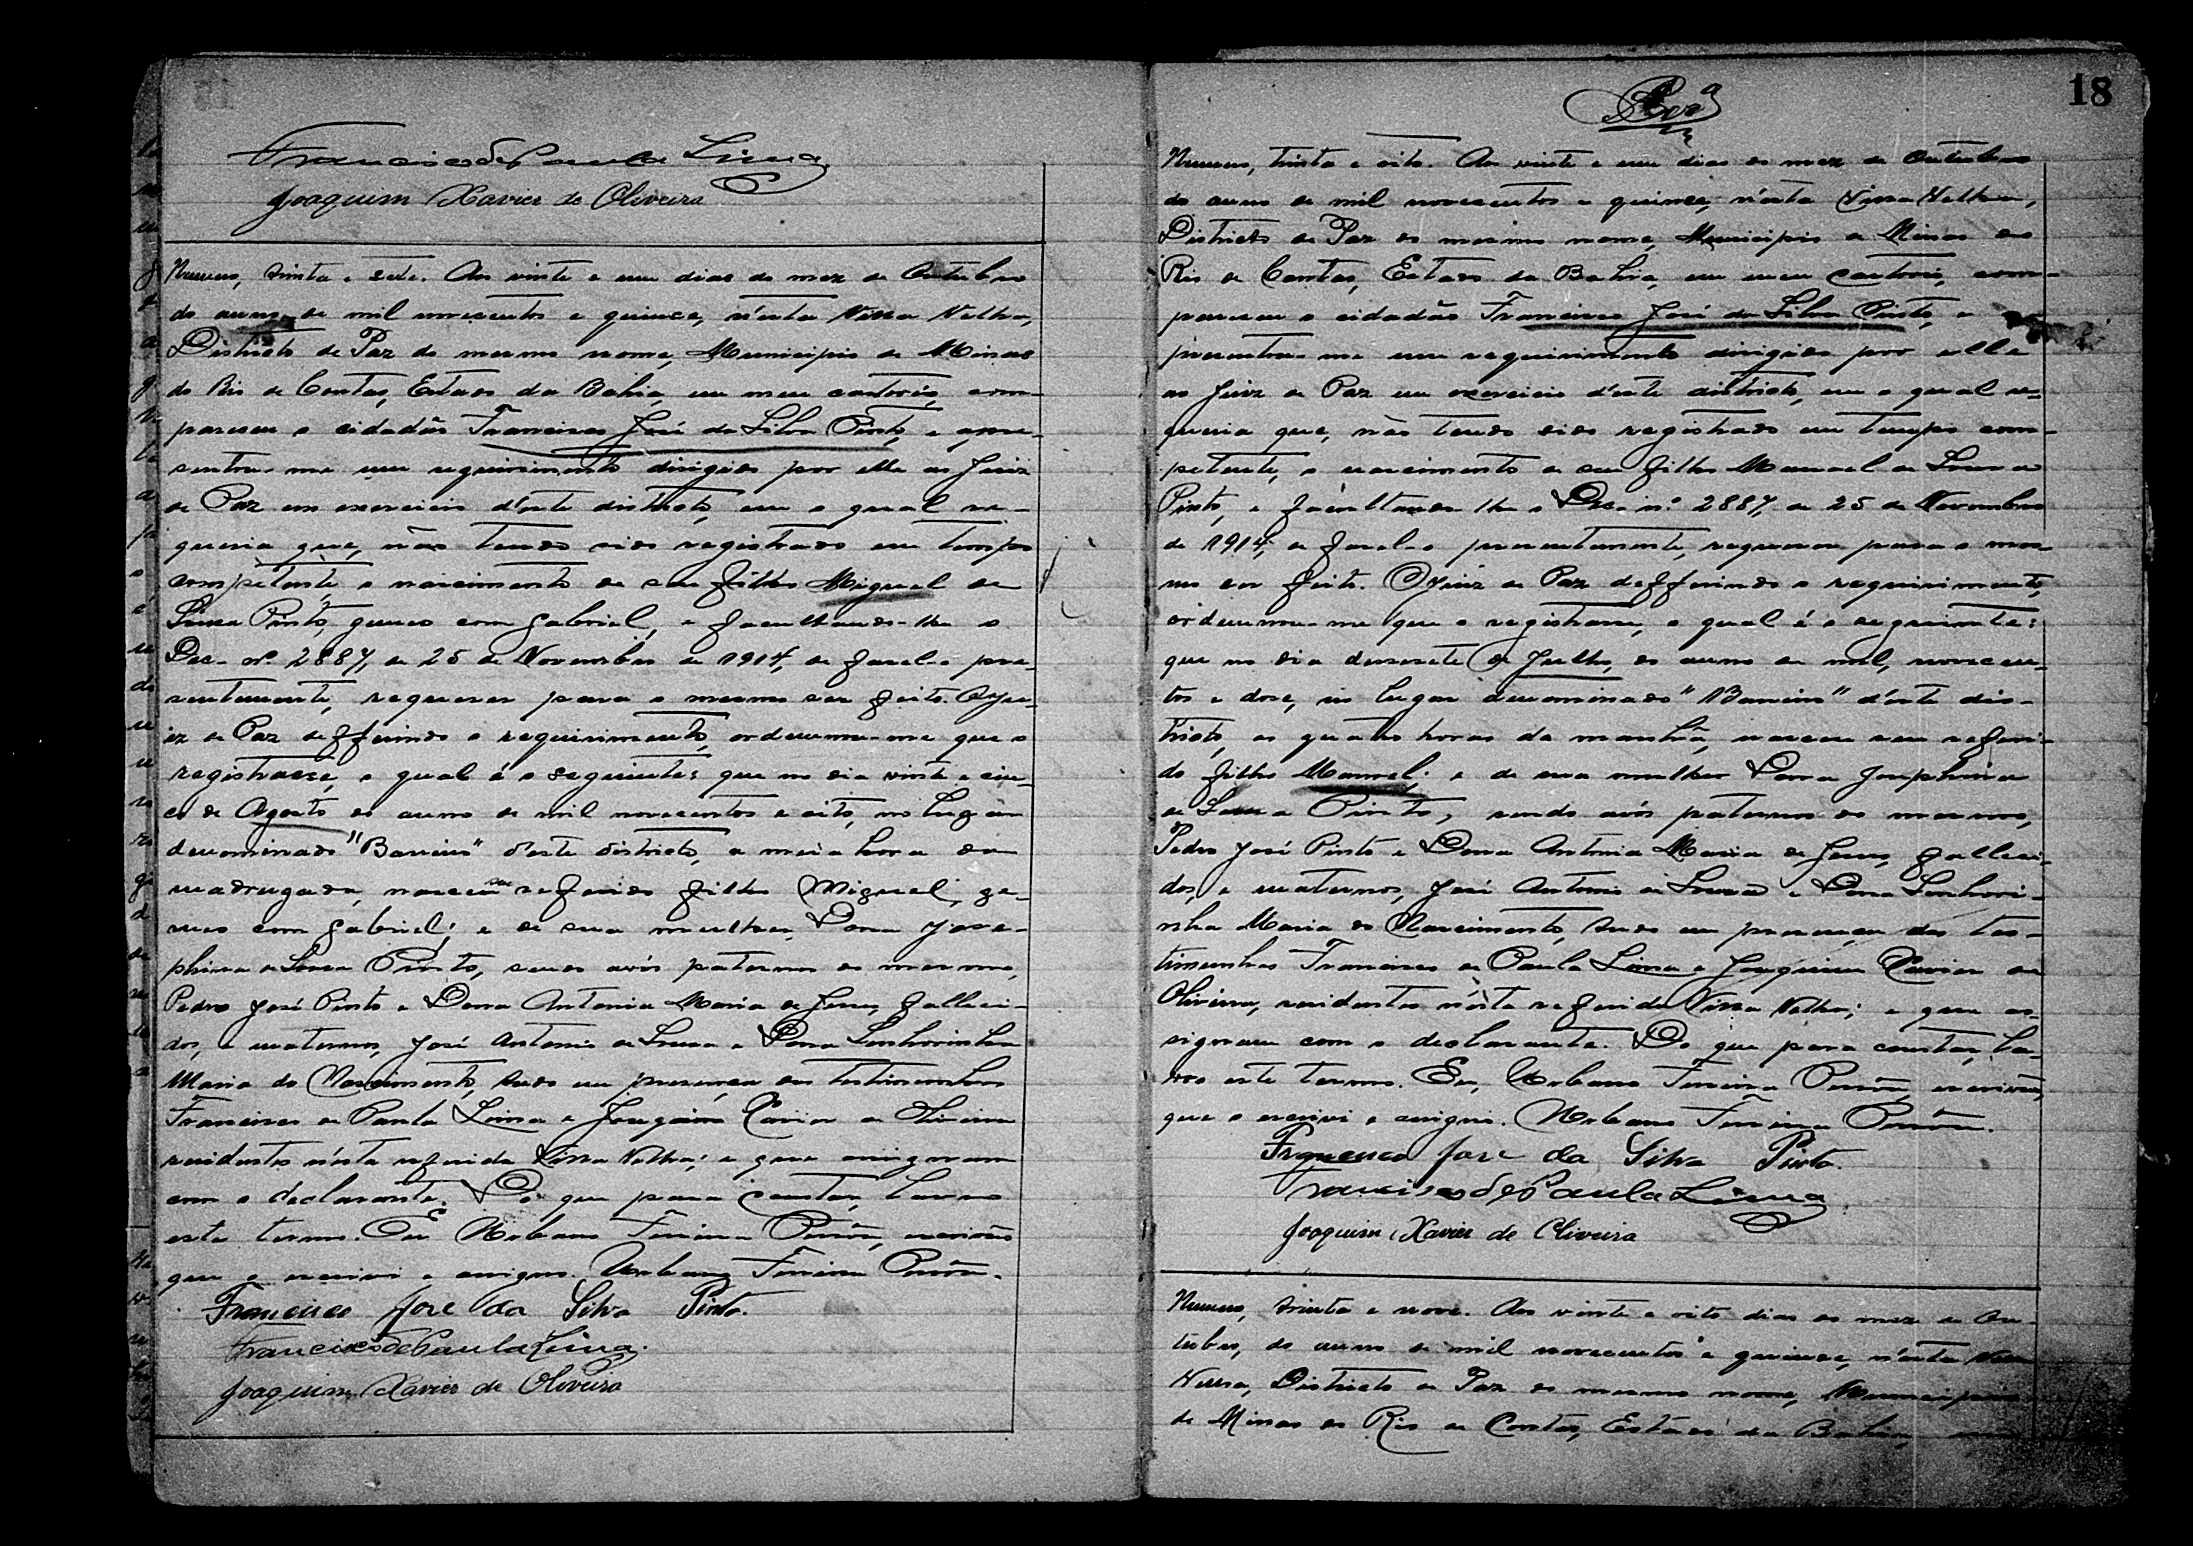 Francisco de Paula Lima
Joaquim Xavier de Oliveira
Numero, trinta e sete. Aos vinte e um dias do mez de Outubro
do anno de mil novecentos e quinze, n'esta Villa Velha,
Districto de Paz do mesmo nome, Municipio de Minas
do Rio de Contas, Estado da Bahia, em meu cartorio, com-
pareceu o cidadão Francisco José da Silva Pinto, e apre-
sentou-me um requerimento dirigido por elle ao Juiz
de Paz em exercicio d'este districto, em o qual re-
queria que, não tendo sido registrado em tempo
competente, o nascimento de seu filho Miguel de
Souza Pinto, gemeo com Gabriel, e facultando-lhe o
Dec. nº 2887, de 25 de Novembro de 1914, de fazel-o pre-
sentemente, requerer para o mesmo ser feito. O Ju-
iz de Paz defferindo o requerimento, ordenou-me que o
registrasse, o qual é o seguinte: que no dia vinte e cin-
co de Agosto do anno de mil novecentos e oito, no lugar
denominado "Barreiro" d'este districto, a meia hora da
madrugada, nasceu seu referido filho Miguel, ge-
meo com Gabriel; e de sua mulher, Dona Jose-
phina de Souza Pinto, sendo avós paternos do mesmo,
Pedro José Pinto e Dona Antonia Maria de Jesus, falleci-
dos, e maternos, José Antonio de Souza e Dona Senhorinha
Maria do Nascimento, tudo em presença das testimunhas
Francisco de Paula Lima e Joaquim Xavier de Oliveira
residentes n'esta referida Villa Velha; e que assignaram
com o declarante. Do que para constar, lavro
este termo. Eu Urbano Ferreira escrivão
que o escrevi e assigno. Urbano Ferreira
Francisco José da Silva Pinto.
Francisco de Paula Lima.
Joaquim Xavier de Oliveira
18
Numero, trinta e oito. Aos vinte e um dias do mez de Outubro
do anno de mil novecentos e quinze, n'esta Villa Velha,
Districto de Paz do mesmo nome, Municipio de Minas do
Rio de Contas, Estado da Bahia, em meu cartorio, com-
pareceu o cidadão Francisco José da Silva Pinto, e
presentou-me um requerimento dirigido por elle
ao Juiz de Paz em exercicio d'este districto, em o qual re-
queria que, não tendo sido registrado em tempo com-
petente, o nascimento de seu filho Manoel de Souza
Pinto, e facultando-lhe o Dec. nº 2887, de 25 de Novembro
de 1914, de fazel-o presentemente, requerer para o mes-
mo ser feito. O Juiz de Paz defferindo o requerimento,
ordenou-me que o registrasse, o qual é o seguinte:
que no dia dezesete de Julho, do anno de mil, novecen-
tos e doze, no lugar denominado "Barreiro" d'este dis-
tricto, as quatro horas da manhã, nasceu seu referi-
do filho Manoel; e de sua mulher Dona Josephina
de Souza Pinto, sendo avós paternos do mesmo,
Pedro José Pinto e Dona Antonia Maria de Jesus, falleci-
dos, e maternos, José Antonio de Souza e Dona Senhori-
nha Maria do Nascimento, tudo em presença das tes-
timunhas Francisco de Paula Lima e Joaquim Xavier de
Oliveira, residentes n'esta referida Villa Velha; e que as-
signaram com o declarante. Do que para constar, la-
vro este termo. Eu, Urbano Ferreira escrivão,
que o escrevi e assigno. Urbano Ferreira
Francisco José da Silva Pinto.
Francisco de Paula Lima
Joaquim Xavier de Oliveira
Numero, trinta e nove. Aos vinte e oito dias do mez de Ou-
tubro, do anno de mil novecentos e quinze, n'esta Villa
Velha, Districto de Paz do mesmo nome, Municipio
de Minas do Rio de Contas, Estado da Bahia, em